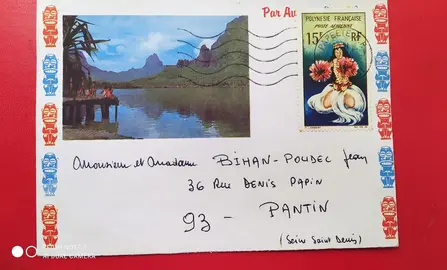 Par Av
POLYNESIE FRANÇAISE
POSTE AERIENNE
15F RF
Monsieur et Madame BIHAN-POUDEC Jean
36 Rue DENIS PAPIN
93 - PANTIN
(Seine Saint Denis)
AI DUAL CAMERA